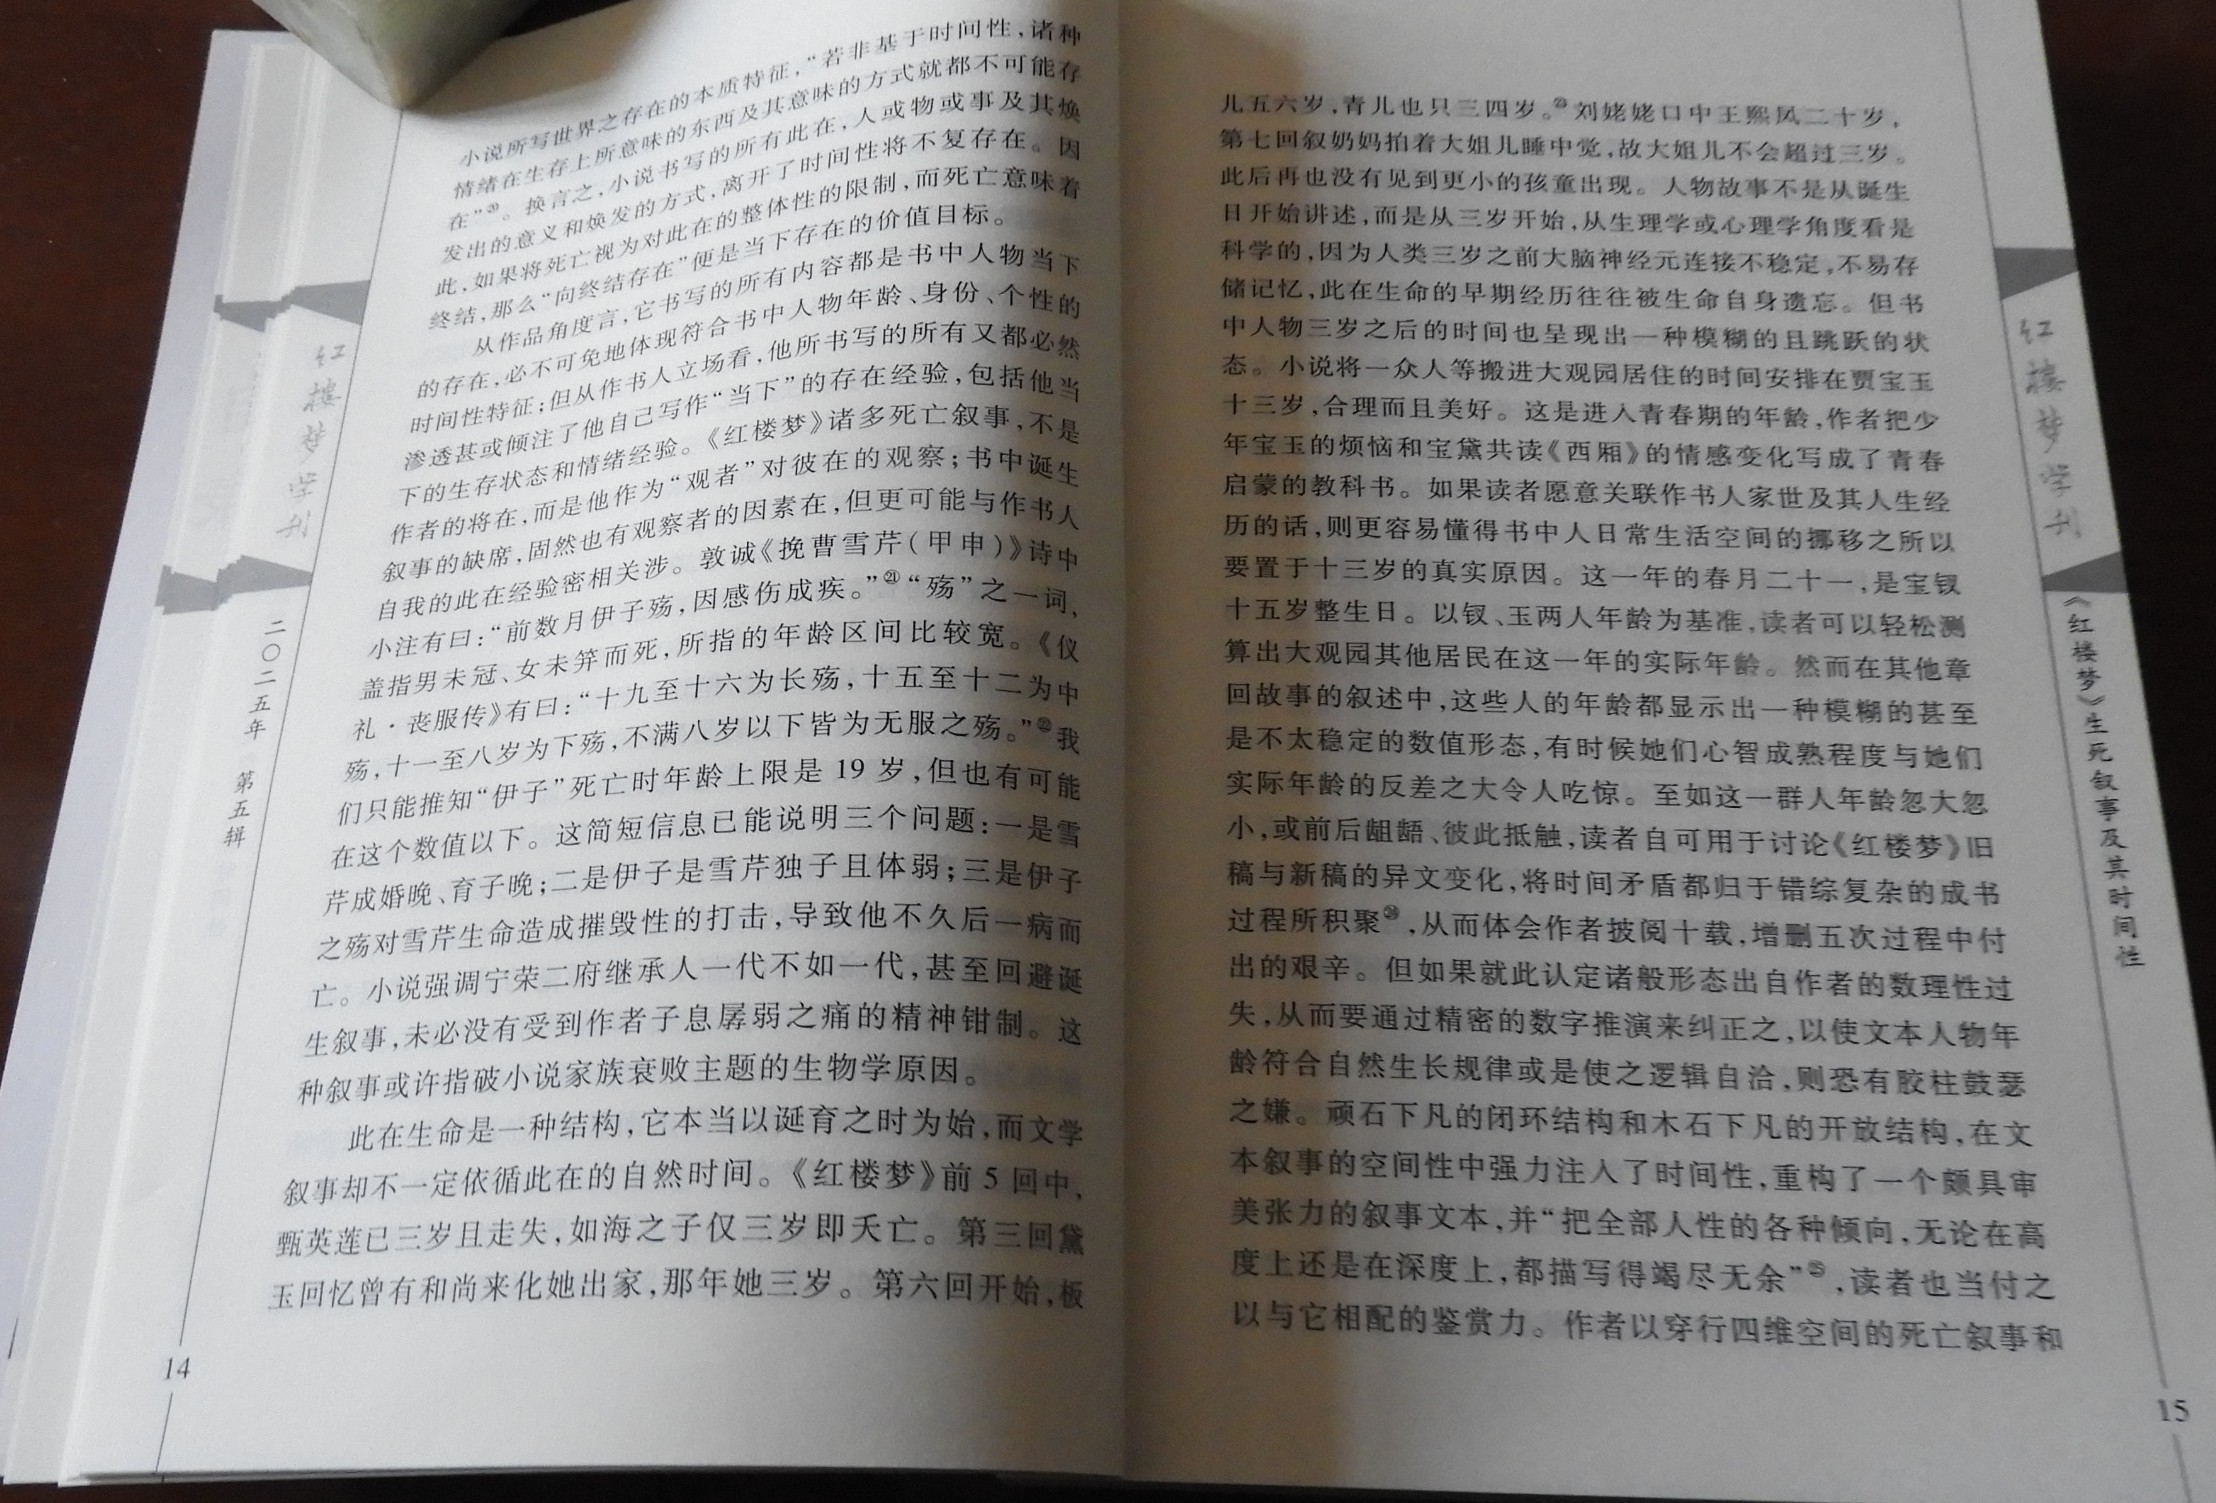 小说所写世界之存在的本质特征，“若非基于时间性，诸种
情绪在生存上所意味的东西及其意味的方式就都不可能存
在”⑳。换言之，小说书写的所有此在，人或物或事及其焕
发出的意义和焕发的方式，离开了时间性将不复存在。因
此，如果将死亡视为对此在的整体性的限制，而死亡意味着
终结，那么“向终结存在”便是当下存在的价值目标。
从作品角度言，它书写的所有内容都是书中人物当下
的存在，必不可免地体现符合书中人物年龄、身份、个性的
时间性特征；但从作书人立场看，他所书写的所有又都必然
渗透甚或倾注了他自己写作“当下”的存在经验，包括他当
下的生存状态和情绪经验。《红楼梦》诸多死亡叙事，不是
作者的将在，而是他作为“观者”对彼在的观察；书中诞生
叙事的缺席，固然也有观察者的因素在，但更可能与作书人
自我的此在经验密相关涉。敦诚《挽曹雪芹（甲申）》诗中
小注有曰：“前数月伊子殇，因感伤成疾。”㉑“殇”之一词，
盖指男未冠、女未笄而死，所指的年龄区间比较宽。《仪
礼·丧服传》有曰：“十九至十六为长殇，十五至十二为中
殇，十一至八岁为下殇，不满八岁以下皆为无服之殇。”㉒我
们只能推知“伊子”死亡时年龄上限是 19 岁，但也有可能
在这个数值以下。这简短信息已能说明三个问题：一是雪
芹成婚晚、育子晚；二是伊子是雪芹独子且体弱；三是伊子
之殇对雪芹生命造成摧毁性的打击，导致他不久后一病而
亡。小说强调宁荣二府继承人一代不如一代，甚至回避诞
生叙事，未必没有受到作者子息孱弱之痛的精神钳制。这
种叙事或许指破小说家族衰败主题的生物学原因。
此在生命是一种结构，它本当以诞育之时为始，而文学
叙事却不一定依循此在的自然时间。《红楼梦》前 5 回中，
甄英莲已三岁且走失，如海之子仅三岁即夭亡。第三回黛
玉回忆曾有和尚来化她出家，那年她三岁。第六回开始，板
14
红楼梦学刊
二〇二五年 第五辑
儿五六岁，青儿也只三四岁。㉓刘姥姥口中王熙凤二十岁，
第七回叙奶妈拍着大姐儿睡中觉，故大姐儿不会超过三岁。
此后再也没有见到更小的孩童出现。人物故事不是从诞生
日开始讲述，而是从三岁开始，从生理学或心理学角度看是
科学的，因为人类三岁之前大脑神经元连接不稳定，不易存
储记忆，此在生命的早期经历往往被生命自身遗忘。但书
中人物三岁之后的时间也呈现出一种模糊的且跳跃的状
态。小说将一众人等搬进大观园居住的时间安排在贾宝玉
十三岁，合理而且美好。这是进入青春期的年龄，作者把少
年宝玉的烦恼和宝黛共读《西厢》的情感变化写成了青春
启蒙的教科书。如果读者愿意关联作书人家世及其人生经
历的话，则更容易懂得书中人日常生活空间的挪移之所以
要置于十三岁的真实原因。这一年的春月二十一，是宝钗
十五岁整生日。以钗、玉两人年龄为基准，读者可以轻松测
算出大观园其他居民在这一年的实际年龄。然而在其他章
回故事的叙述中，这些人的年龄都显示出一种模糊的甚至
是不太稳定的数值形态，有时候她们心智成熟程度与她们
实际年龄的反差之大令人吃惊。至如这一群人年龄忽大忽
小，或前后龃龉、彼此抵触，读者自可用于讨论《红楼梦》旧
稿与新稿的异文变化，将时间矛盾都归于错综复杂的成书
过程所积聚㉔，从而体会作者披阅十载，增删五次过程中付
出的艰辛。但如果就此认定诸般形态出自作者的数理性过
失，从而要通过精密的数字推演来纠正之，以使文本人物年
龄符合自然生长规律或是使之逻辑自洽，则恐有胶柱鼓瑟
之嫌。顽石下凡的闭环结构和木石下凡的开放结构，在文
本叙事的空间性中强力注入了时间性，重构了一个颇具审
美张力的叙事文本，并“把全部人性的各种倾向，无论在高
度上还是在深度上，都描写得竭尽无余”㉕，读者也当付之
以与它相配的鉴赏力。作者以穿行四维空间的死亡叙事和
红楼梦学刊
《红楼梦》生死叙事及其时间性
15